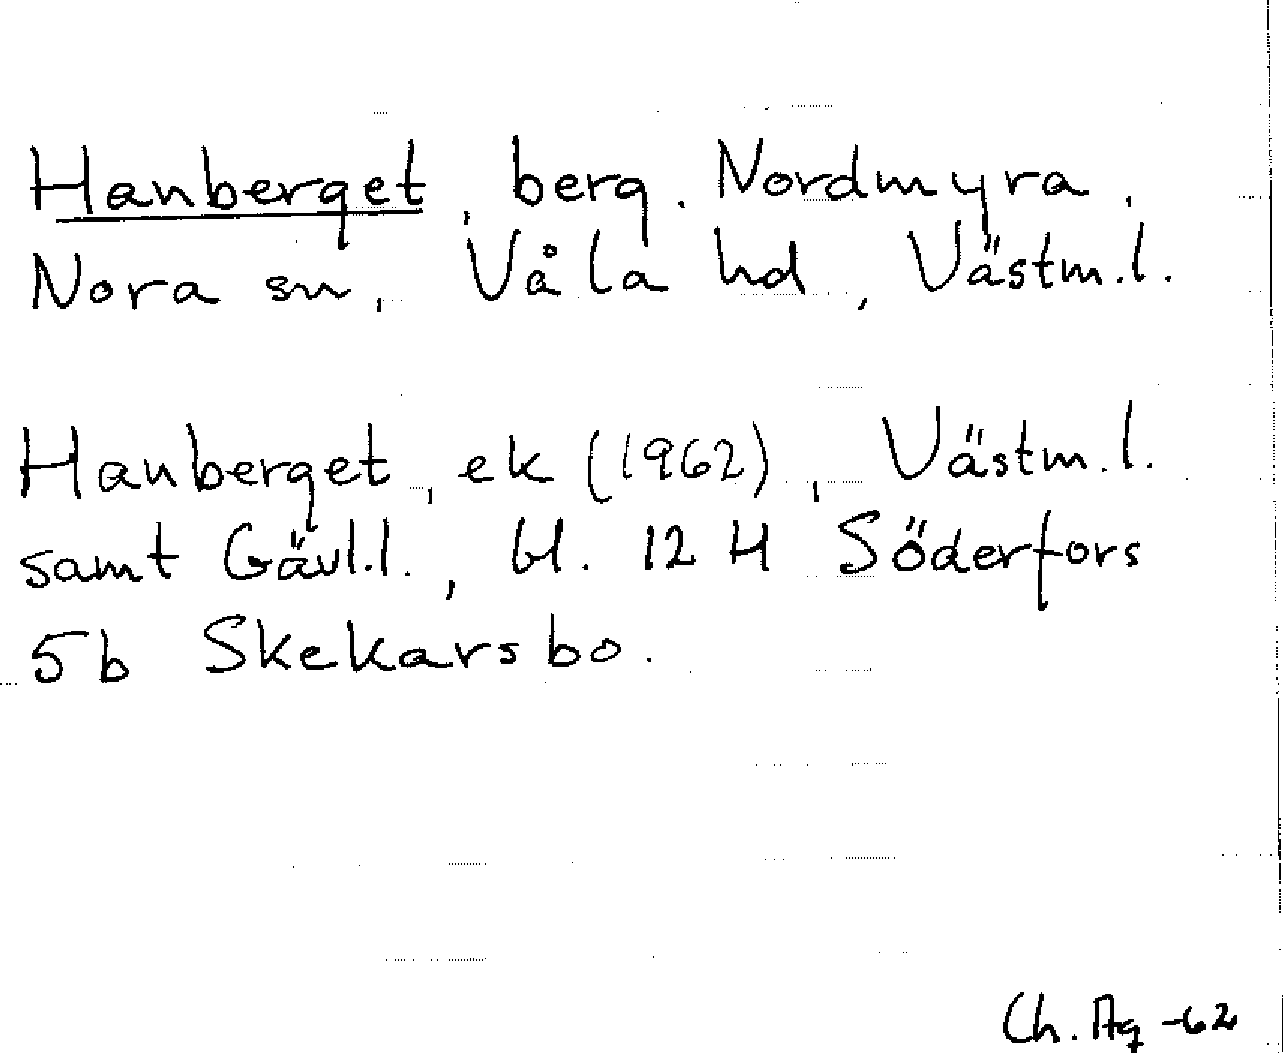 Hanberget, berg. Nordmyra,
Nora sn, Våla hd, Västm.l.
Hanberget, ek (1962), Västm.l.
samt Gävl.l., bl. 12 H Söderfors
5b Skekarsbo.
Ch. Ag -62